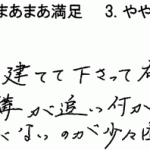 まあまあ満足 3. やや
建てて下さって
が追い何か
ないのが少々